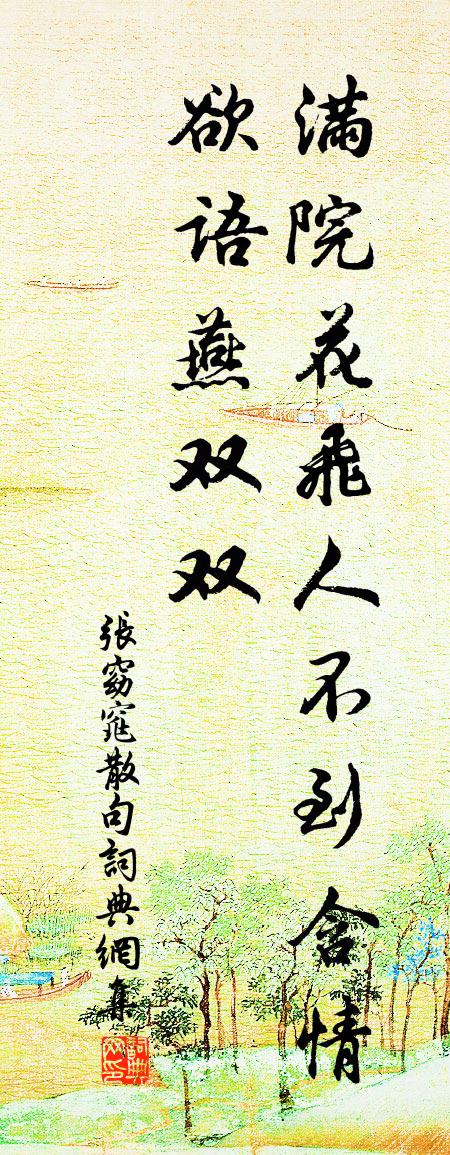 滿院花飛人不到含情
欲語燕双双
張窈窕散句詞典網集